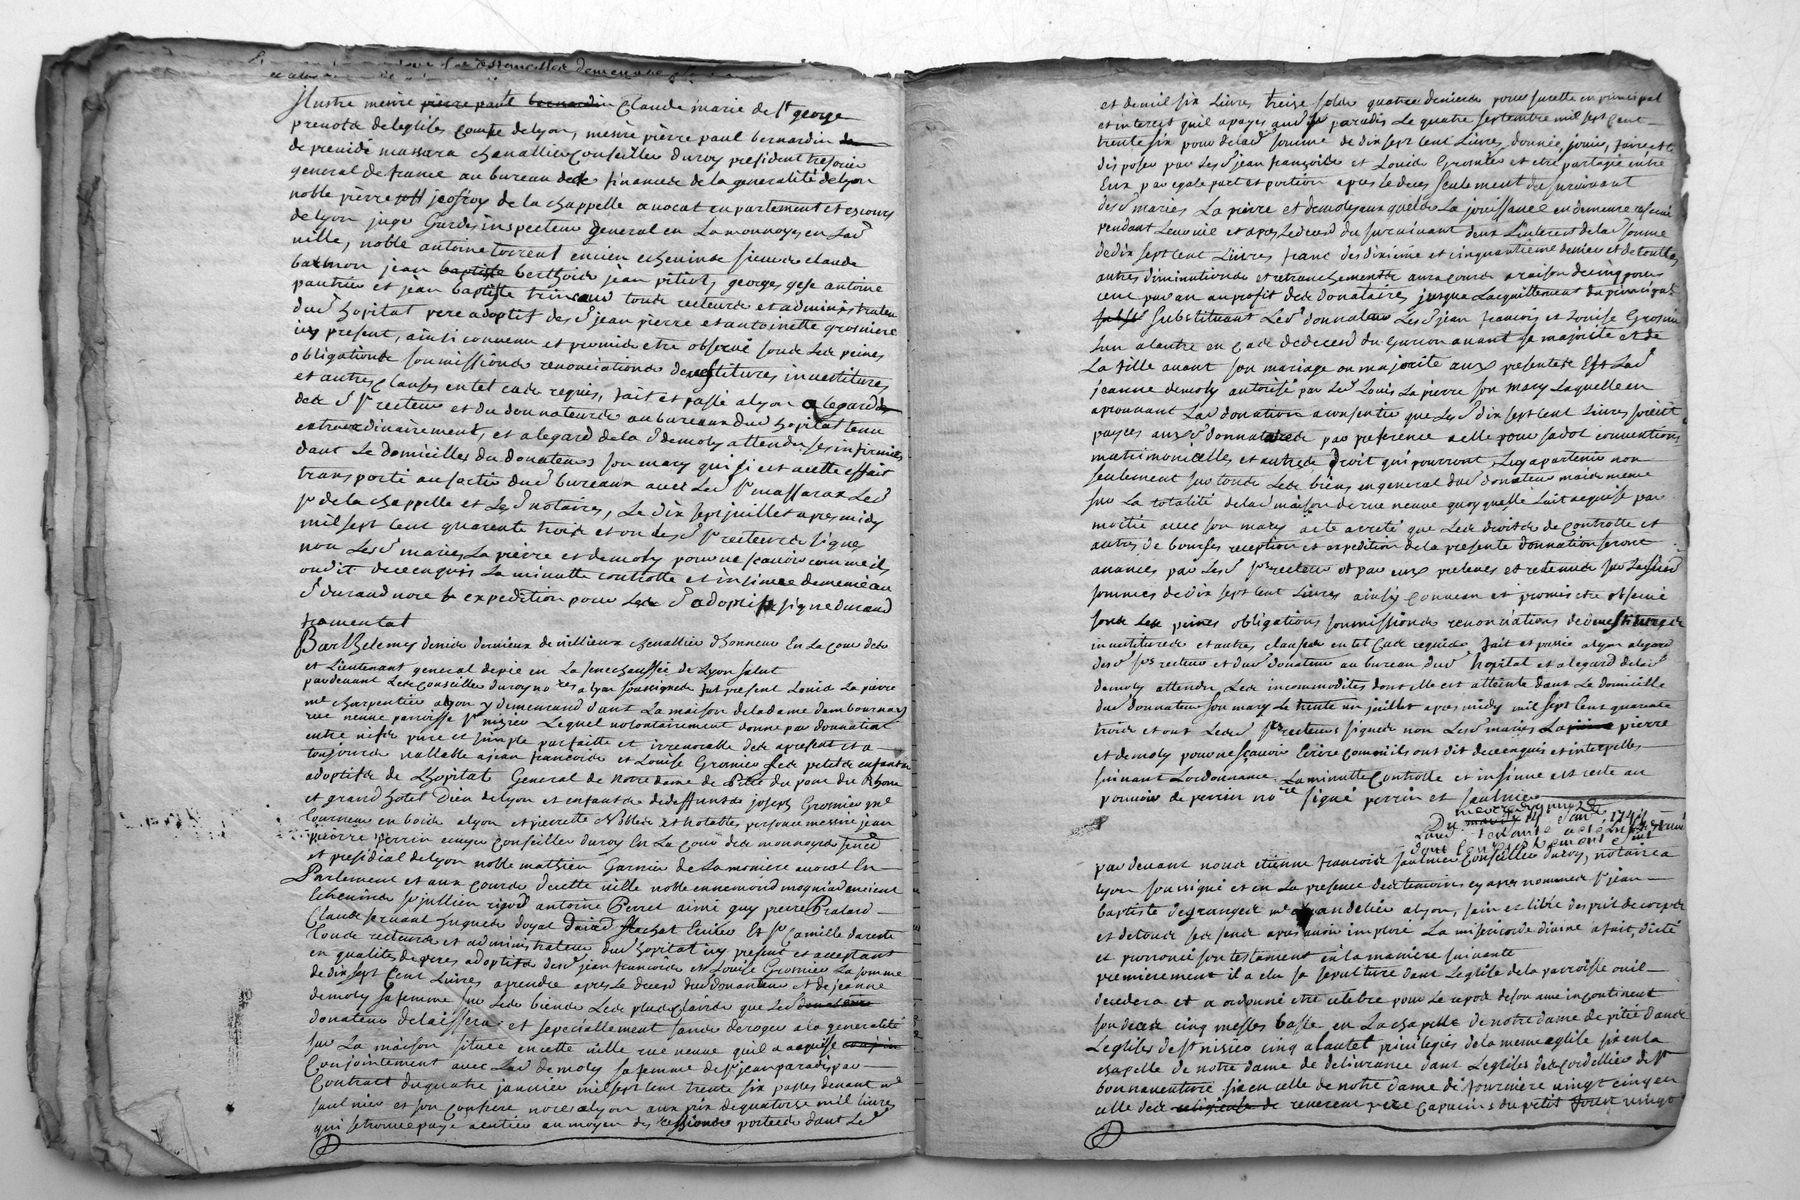 Illustre messire pierre paul bernardin Claude marie de St george
prevost de leglises comte de lyon, messire pierre paul bernardin de
de prenide massara chanallier conseiller du roy president tresorier
general de france au bureau des finances de la generalité de lyon
noble pierre jeofroy de la chappelle avocat en parlement et es cours
de lyon juge Gardes inspecteur general en La monnoyes en Lad
ville, noble antoine torrent encien echevin sieurs claude
jean baptiste berthoide jean pitiot, georges gese antoine
pautrier et jean baptiste tous recteurs et administrateurs
dud hopital pere adoptif desd jean pierre et antoinette grosniere
icy present, ainsi convenu et promis etre observé sous Les peines
obligations soumissions renonciations investitures
et autres clauses en tel cas requis, fait et passé a lyon a legard
desd Srs recteurs et du donnateur au bureau dud hopital tenu
extraordinairement, et a legard de la de moly attendu ses infirmités
dans Le domicilles du donateur son mary qui si est a cette effait
transporté au sortir dud bureaux avec Led Sr massara Led
Sr de la chappelle et Lesd notaires, Le dix sept juillet apres midy
mil sept Cent quarente trois et ont Lesd Srs recteurs signes
non Lesd mariés La pierre et demoly pour ne scavoir comme ils
ont dit de ce enquis La minutte controlle et insinuee demeuré au
Sr durand nore expedition pour Lesd adoptif signe durand
framental
Barthelemy denis dervieux de villieux chevallier dhonneur En La cour des
et Lieutenant general depié en La senechaussée de Lyon salut
pardevant Les conseillers du roy nores a lyon soussignes fut present Louis La pierre
me charpentier alyon y demeurand dans La maison de la dame dambournay
rue neuve parroisse St nizier Lequel volontairement donne par donnation
entre vifs pure et simple parfaitte et irrevocable des a present et a
toujours vallable a jean francoise et Louise Grosnier petits enfants
adoptifs de Lhopital General de notre dame de Pitié du pont du Rhone
et grand hotel Dieu de lyon et enfants de deffunts joseph Grosnier me
tourneur en bois a lyon et pierrette Noblet personne messire jean
pierre perrin ecuyer conseiller du roy En La Cour des monnoyes senech
et presidial de lyon noble mathieu Garnier de La moniere avocat En
Parlement et aux cours de cette ville noble ennemond mogniad encient
Echevin Sr jullien rigod antoine Perret aimé guy pierre Pralard
Claude servant hugues doyal David flachat Enier Et Sr Camille dareste
tous recteurs et administrateurs dud hopital icy present et acceptant
en qualités de peres adoptifs desd jean francoise et Louise Grosnier La somme
de dix sept Cent Livres a prendre apres Le deces dud donateur et de jeanne
demoly sa femme sur Les biens Les plus clairs que Led donateur
donateur delaissera et sepeciallement sans deroger a la generalité
sur La maison située en cette ville rue neuve quil a acquise
Conjointement avec Lad demoly sa femme de Sr jean paradis par
Contract du quatre janvier mil sept cent trente six passes devant me
saulnier et son confrere nores alyon aux prix de quatorse mil livres
qui se trouve payé a entier au moyen des cessions portées dans Led
et de mil six Livres treise sols quatre deniers pour surette en principal
et interest quil a payes aud Sr paradis Le quatre septembre mil sept cent
trente six pour de lad somme de dix sept cent Livres, donnée, jouir, faire et
disposer par Lesd jean françoise et Louis Grosnier et etre partagé entre
Eux par egale part et portion apres Le deces seulement du survivant
desd mariés La pierre et demoly auxquels La jouissance en demeure reservé
pendant Leur vie et apres Le deces du survivant deux Linterest de lad somme
de dix sept cent Livres franc des dixieme et cinquantieme denier et de touttes
autres diminutions et retranchements aura cours a raison de cinq pour
cent par an au profit desd donataires jusqua Lacquittement du principal
Substituant Led donnateur Lesd jean francois et Louise Grosnier
Lun a lautre en cas de deces du garcon avant sa majorité et de
La fille avant son mariage ou majorité aux presentes Est Lad
jeanne demoly autorisé par Led Louis La pierre son mary Laquelle en
aprouvant Lad donation a consentie que Lesd dix sept cent Livres soient
payees aux d donnataires par preference a elle pour sadot conventions
matrimonielles et autres Droit qui pourront Luy apartenir non
seulement sur tous Les biens en general dud donateur mais meme
sur La totalité de lad maison de rue neuve quoy quelle Lait acquise par
moitie avec son mary a ete arreté que Les droits de Controlle et
autres de bourses reception et expedition de la presente donnation seront
avances par Lesd Srs recteurs et par eux preleves et retenus sur Lesd
sommes de dix sept cent Livres ainsy convenu et promis etre observé
sous Les peines obligations soumissions renonciations
investitures et autres clauses en tel cas requis fait et passé a lyon a legard
desd Srs recteurs et dud donateur au bureau dud hopital et a legard de lad
demoly attendu Les incommodités dont elle est atteinte dans Le domicille
dud donateur son mary Le trente un juillet apres midy mil sept cent quarante
trois et ont Lesd Srs recteurs signés non Lesd mariés La pierre
et demoly pour ne scavoir Ecrire comme ils ont dit de ce enquis et interpellés
suivant Lordonnance La minutte Controlle et insinué est resté au
pouvoir de perrin nore signé perrin et saulnier
Du mercredy janv 1744
pardevant nous etienne francoise saulnier conseiller du roy, notaire a
lyon soussigné et en La presence des temoins cy apres nommes Sr jean
baptiste degranges me a lyon, sain et libre desprit de corps
et de tous ses sens apres avoir imploré La misericorde divine a fait, dicté
et prononcé son testament en la maniere suivante
premierement il a elu sa sepulture dans Leglise de la parroisse ou il
decedera et a ordonné etre celebre pour Le repos de son ame incontinent
son deces cinq messes basse en La chapelle de notre dame de pitié dans
Leglises de St nisier cinq a lautel privilegiés de la meme eglise six en la
chapelle de notre dame de delivrance dans Leglises des cordelliers de St
bonnaventure six en celle de notre dame de fourviere vingt cinq en
celle des religieuses de reverent pere Capucins du petit foret vingt